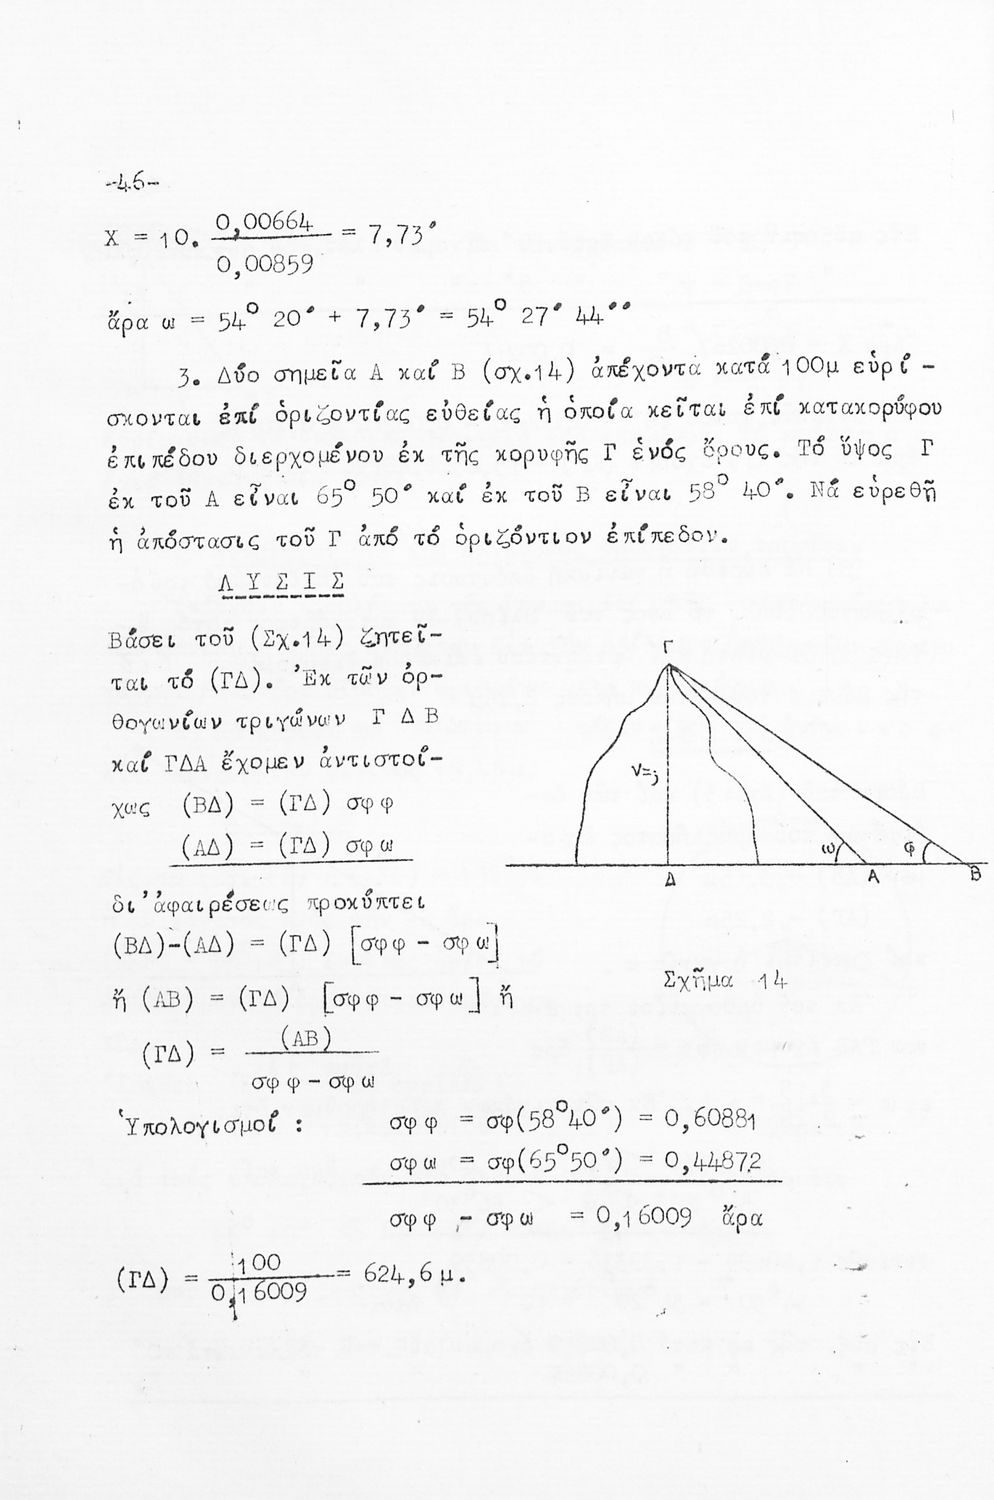 -46-
Χ = 10. 0,00664 / 0,00859 = 7,73΄
ἄρα ω = 54⁰ 20΄ + 7,73΄ = 54⁰ 27΄ 44΄΄
3. Δύο σημεῖα Α καί Β (σχ.14) ἀπέχοντα κατά 100μ εὑρί -
σκονται ἐπί ὁριζοντίας εὐθείας ἡ ὁποία κεῖται ἐπί κατακορύφου
ἐπιπέδου διερχομένου ἐκ τῆς κορυφῆς Γ ἑνός ὄρους. Τό ὕψος Γ
ἐκ τοῦ Α εἶναι 65⁰ 50΄ καί ἐκ τοῦ Β εἶναι 58⁰ 40΄. Νά εὑρεθῇ
ἡ ἀπόστασις τοῦ Γ ἀπό τό ὁριζόντιον ἐπίπεδον.
Λ Υ Σ Ι Σ
Βάσει τοῦ (Σχ.14) ζητεῖ-
ται τό (ΓΔ). Ἐκ τῶν ὀρ-
θογωνίων τριγώνων Γ Δ Β
καί ΓΔΑ ἔχομεν ἀντιστοί-
χως (ΒΔ) = (ΓΔ) σφφ
(ΑΔ) = (ΓΔ) σφω
δι'ἀφαιρέσεως προκύπτει
(ΒΔ)-(ΑΔ) = (ΓΔ) [σφφ - σφω]
ἤ (ΑΒ) = (ΓΔ) [σφφ - σφω] ἤ
(ΓΔ) = (ΑΒ) / σφφ - σφω
Γ
ν=;
ω
φ
Δ
Α
Β
Σχῆμα 14
Ὑπολογισμοί : σφφ = σφ(58⁰40΄) = 0,60881
σφω = σφ(65⁰50΄) = 0,44872
σφφ - σφω = 0,16009 ἄρα
(ΓΔ) = 100 / 0,16009 = 624,6μ.